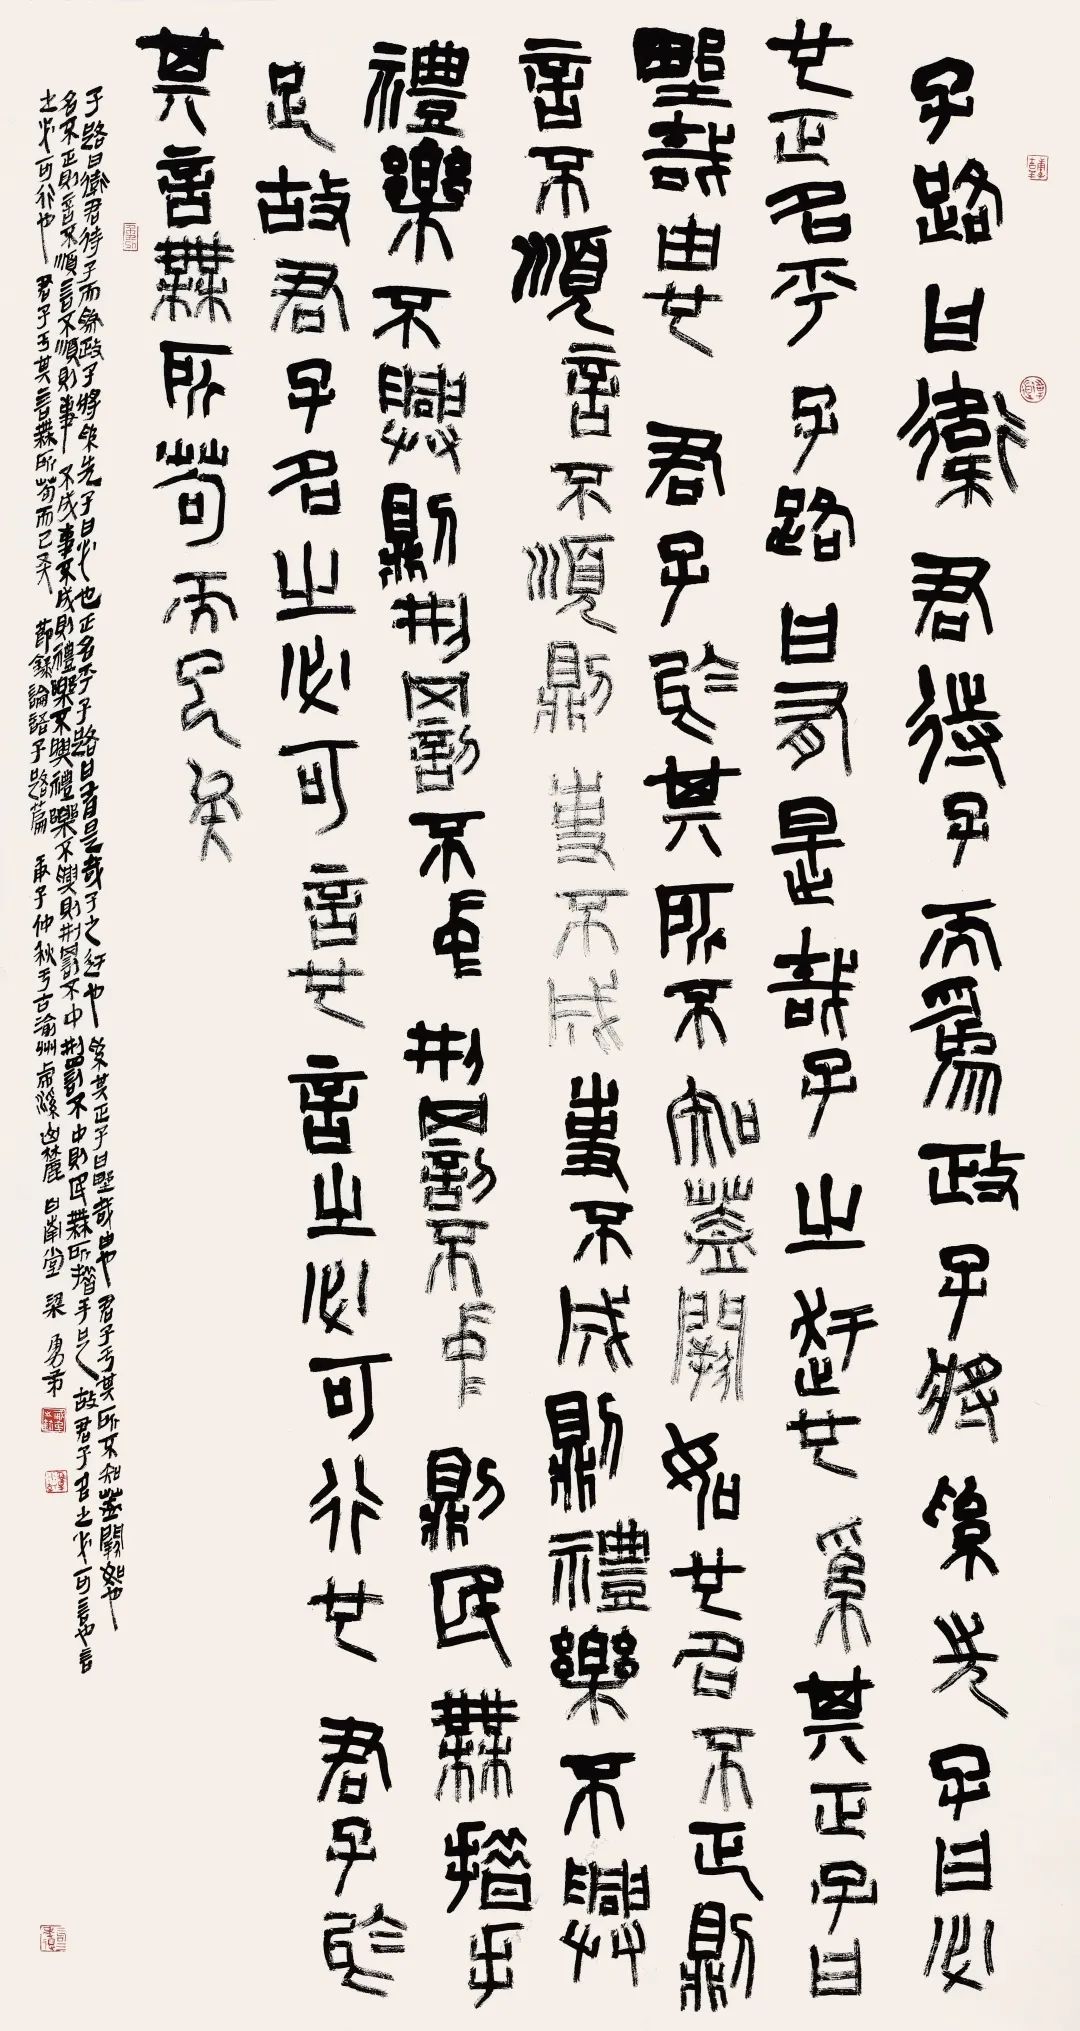 子路曰衛君待子而爲政子將奚先子曰必
也正名乎子路曰有是哉子之迂也奚其正子曰
野哉由也君子於其所不知蓋闕如也名不正則
言不順言不順則事不成事不成則禮樂不興
禮樂不興則刑罰不中刑罰不中則民無措手
足故君子名之必可言也言之必可行也君子於
其言無所苟而已矣
子路曰衛君待子而爲政子將奚先子曰必也正名乎子路曰有是哉子之迂也奚其正子曰野哉由也君子于其所不知蓋闕如也
名不正則言不順言不順則事不成事不成則禮樂不興禮樂不興則刑罰不中刑罰不中則民無所措手足故君子名之必可言也言
之必可行也君子于其言無所苟而已矣節錄論語子路篇庚子仲秋于古渝州虎溪山麓南堂梁勇